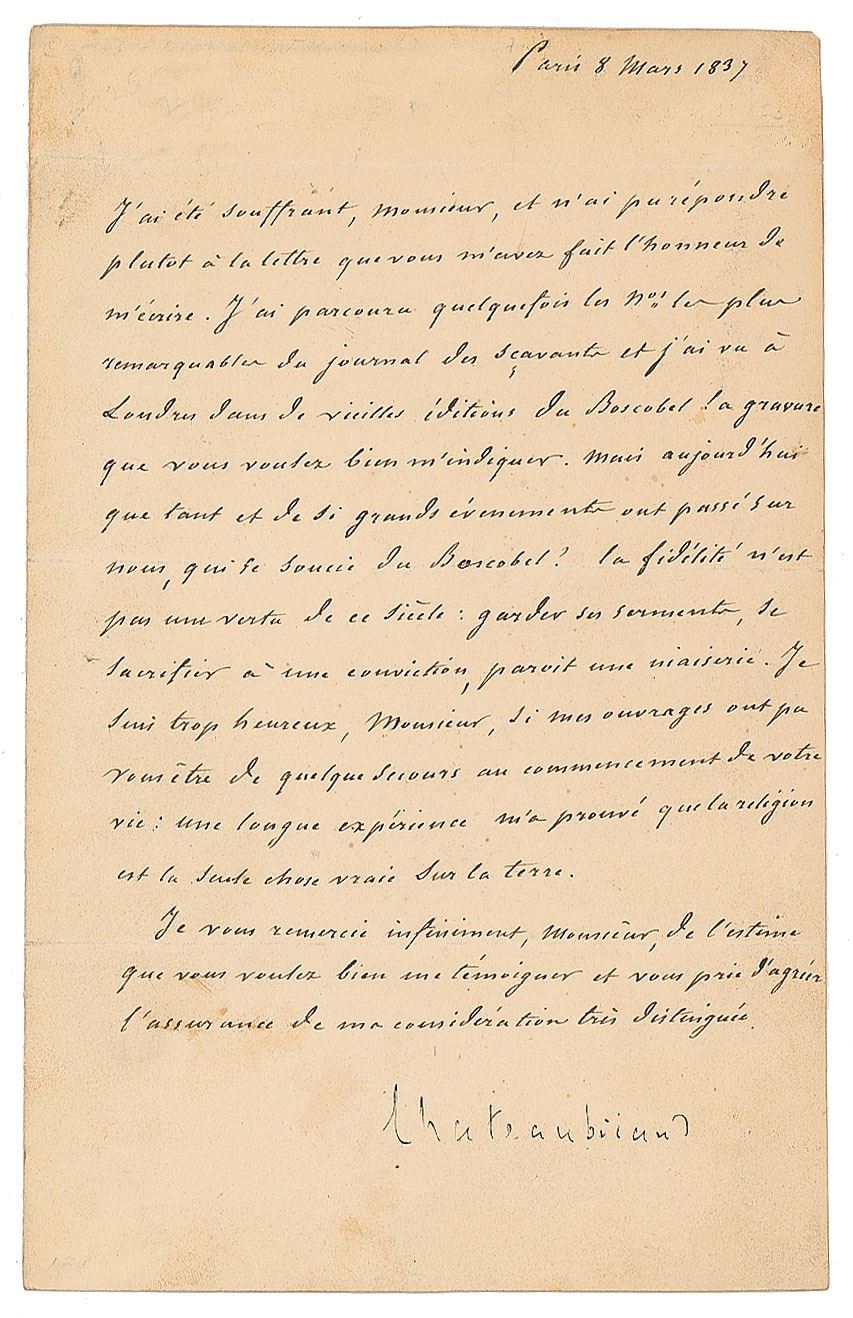 Paris 8 Mars 1837
J'ai été souffrant, Monsieur, et n'ai pu répondre
plutot à la lettre que vous m'avez fait l'honneur de
m'écrire. J'ai parcouru quelquefois les Nos les plus
remarquables du journal des sçavants et j'ai vu à
Londres dans de vieilles éditions du Boscobel la gravure
que vous voulez bien m'indiquer. Mais aujourd'hui
que tant et de si grands évenements ont passé sur
nous, qui se soucie du Boscobel? la fidélité n'est
pas une vertu de ce siècle : garder ses serments, se
sacrifier à une conviction, paroit une niaiserie. Je
suis trop heureux, Monsieur, si mes ouvrages ont pu
vous être de quelque secours au commencement de votre
vie : une longue expérience m'a prouvé que la religion
est la seule chose vraie sur la terre.
Je vous remercie infiniment, Monsieur, de l'estime
que vous voulez bien me témoigner et vous prie d'agréer
l'assurance de ma considération très distinguée.
Chateaubriand